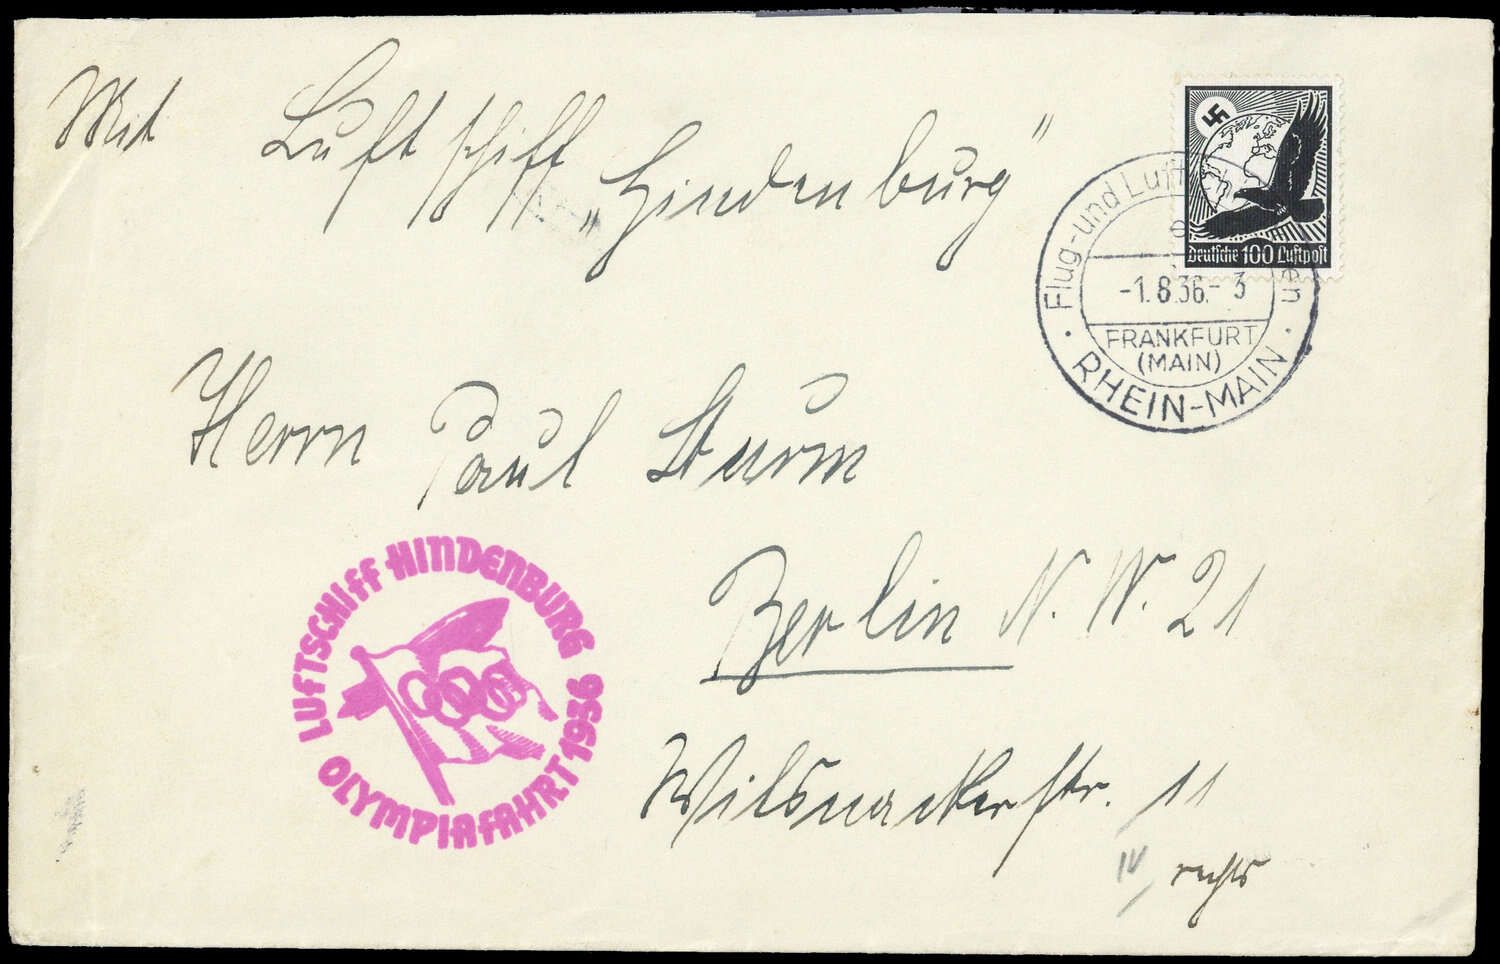 Mit Luftschiff „Hindenburg"
Deutsche 100 Luftpost
Flug- und Luft
-1.8.36.- 3
FRANKFURT
(MAIN)
RHEIN-MAIN
Herrn Paul Sturm
LUFTSCHIFF HINDENBURG
OLYMPIAFAHRT 1936
Berlin N.W. 21
Wilsnackerstr. 11
IV rechts